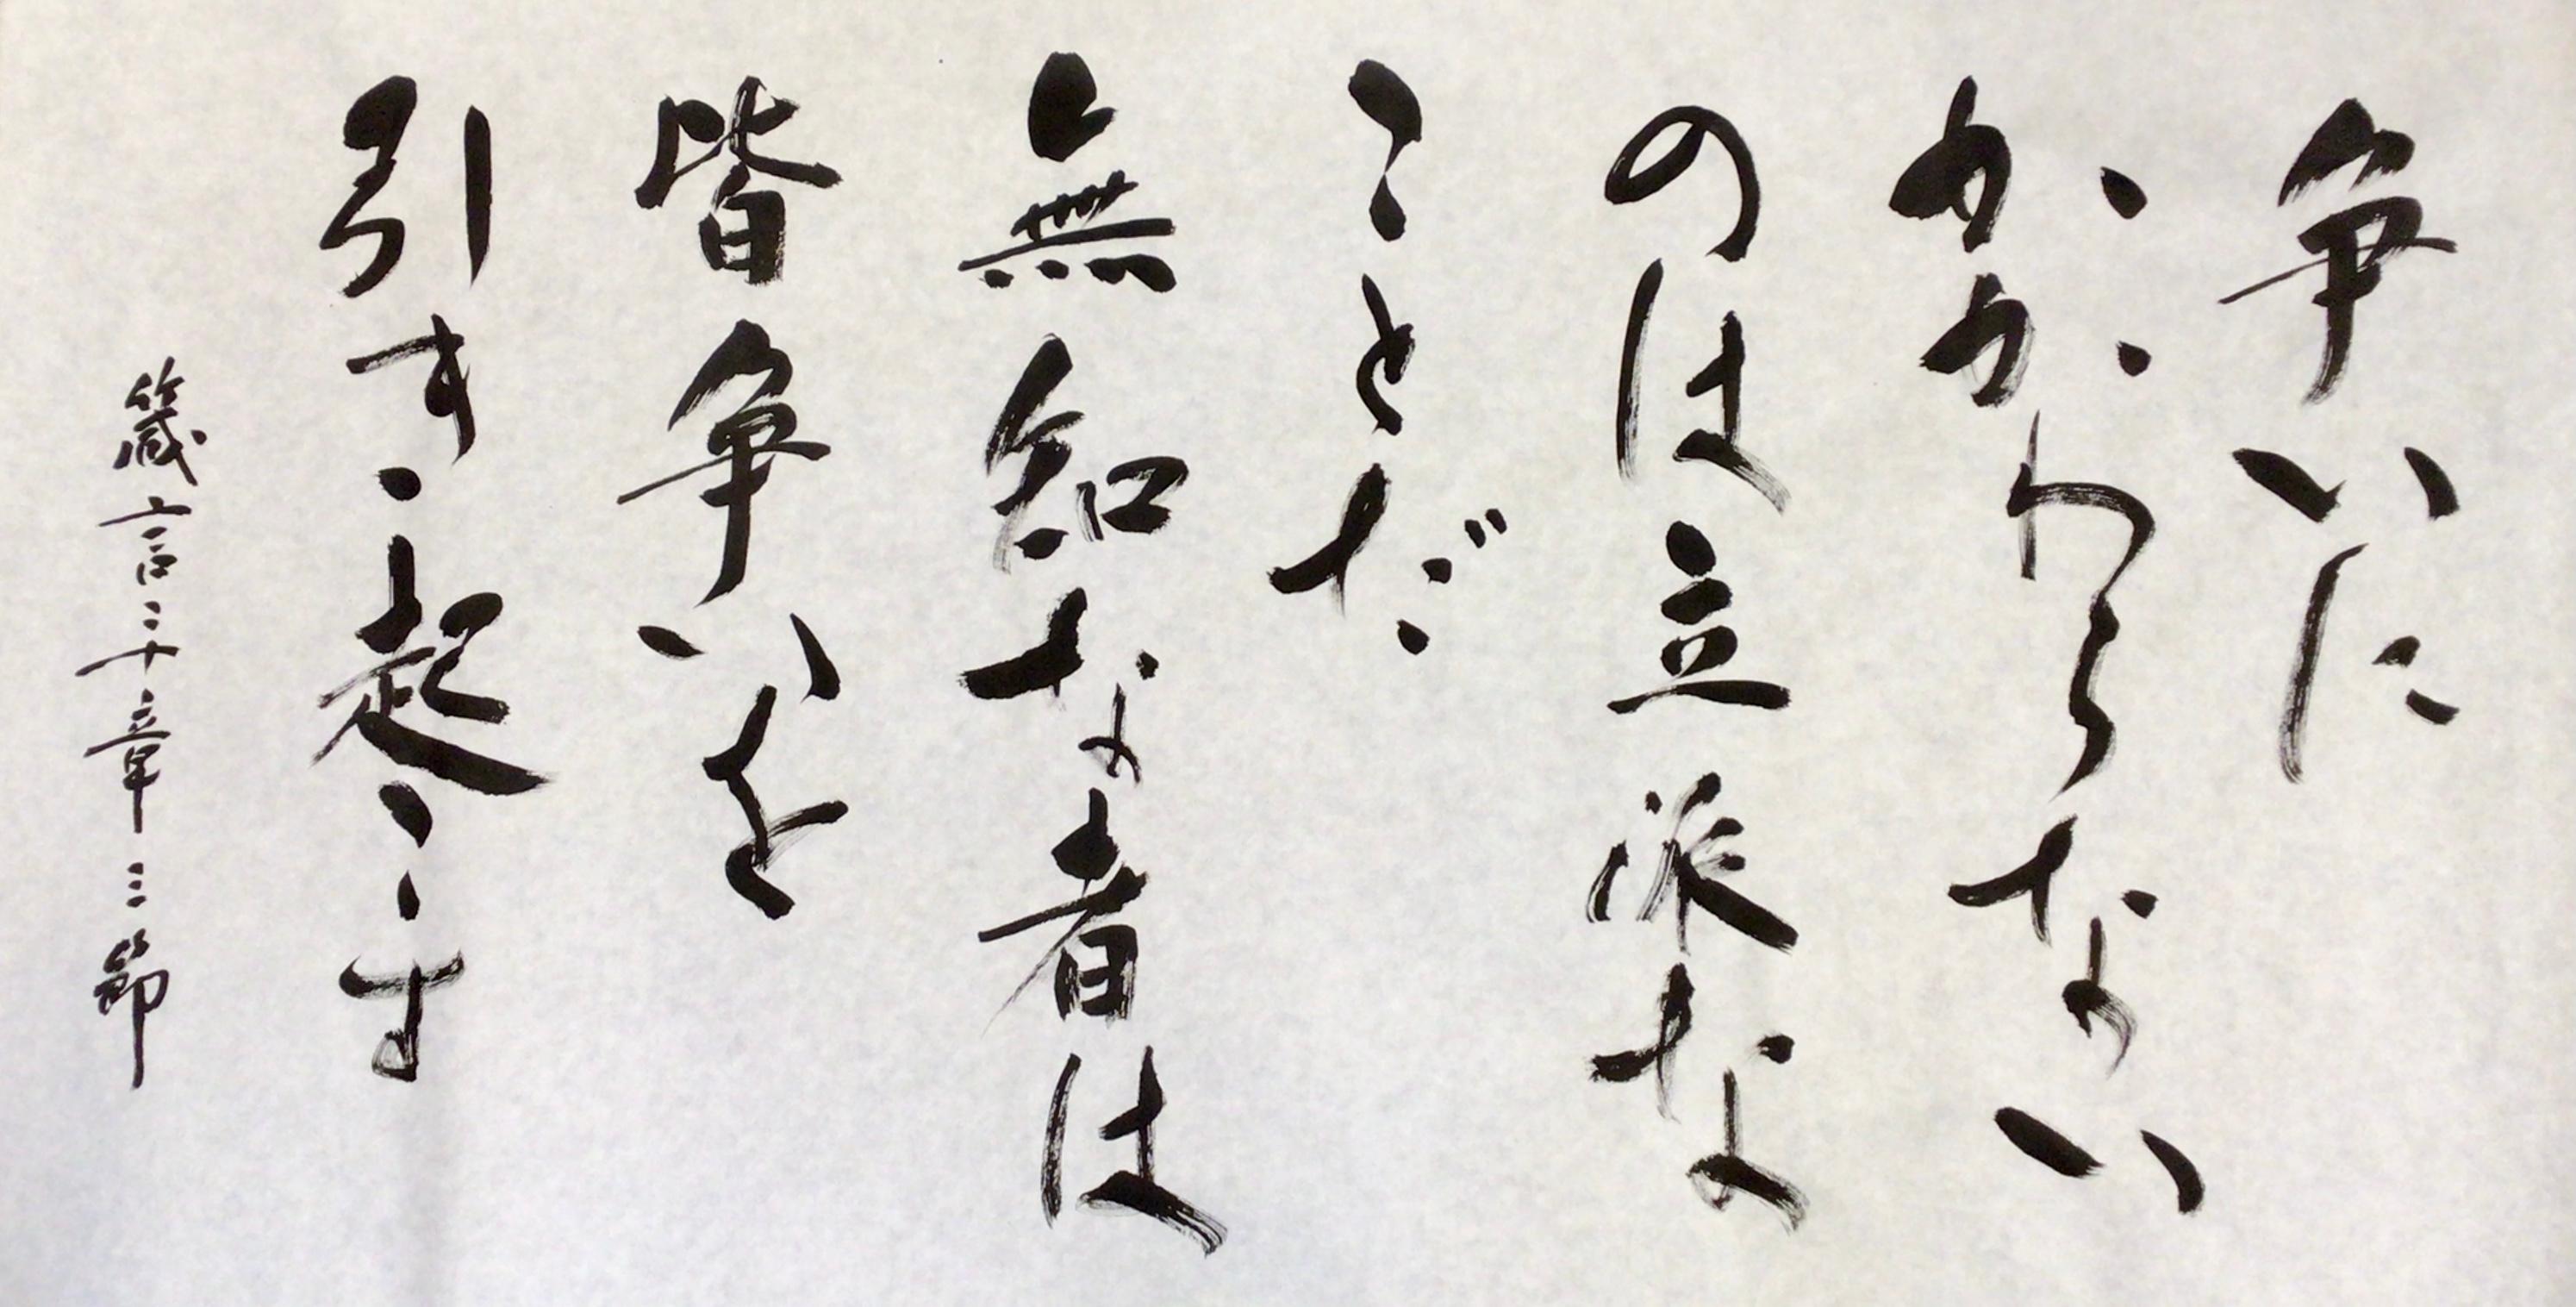 争いに
かかわらない
のは立派な
ことだ
無知な者は
皆争いを
引き起こす
箴言二十章三節